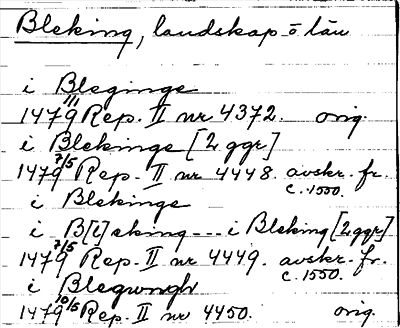 Bleking, landskap o. län
i Bleginge
1479 1/1 Rep. II nr 4372. orig.
i Blekinge [2 ggr]
1479 7/5 Rep. II nr 4448. avskr. fr. c. 1550.
i Blekinge
i B[l]eking --- i Bleking [2 ggr]
1479 7/5 Rep. II nr 4449. avskr. fr. c. 1550.
i Blegwngh
1479 10/5 Rep. II nr 4450. orig.